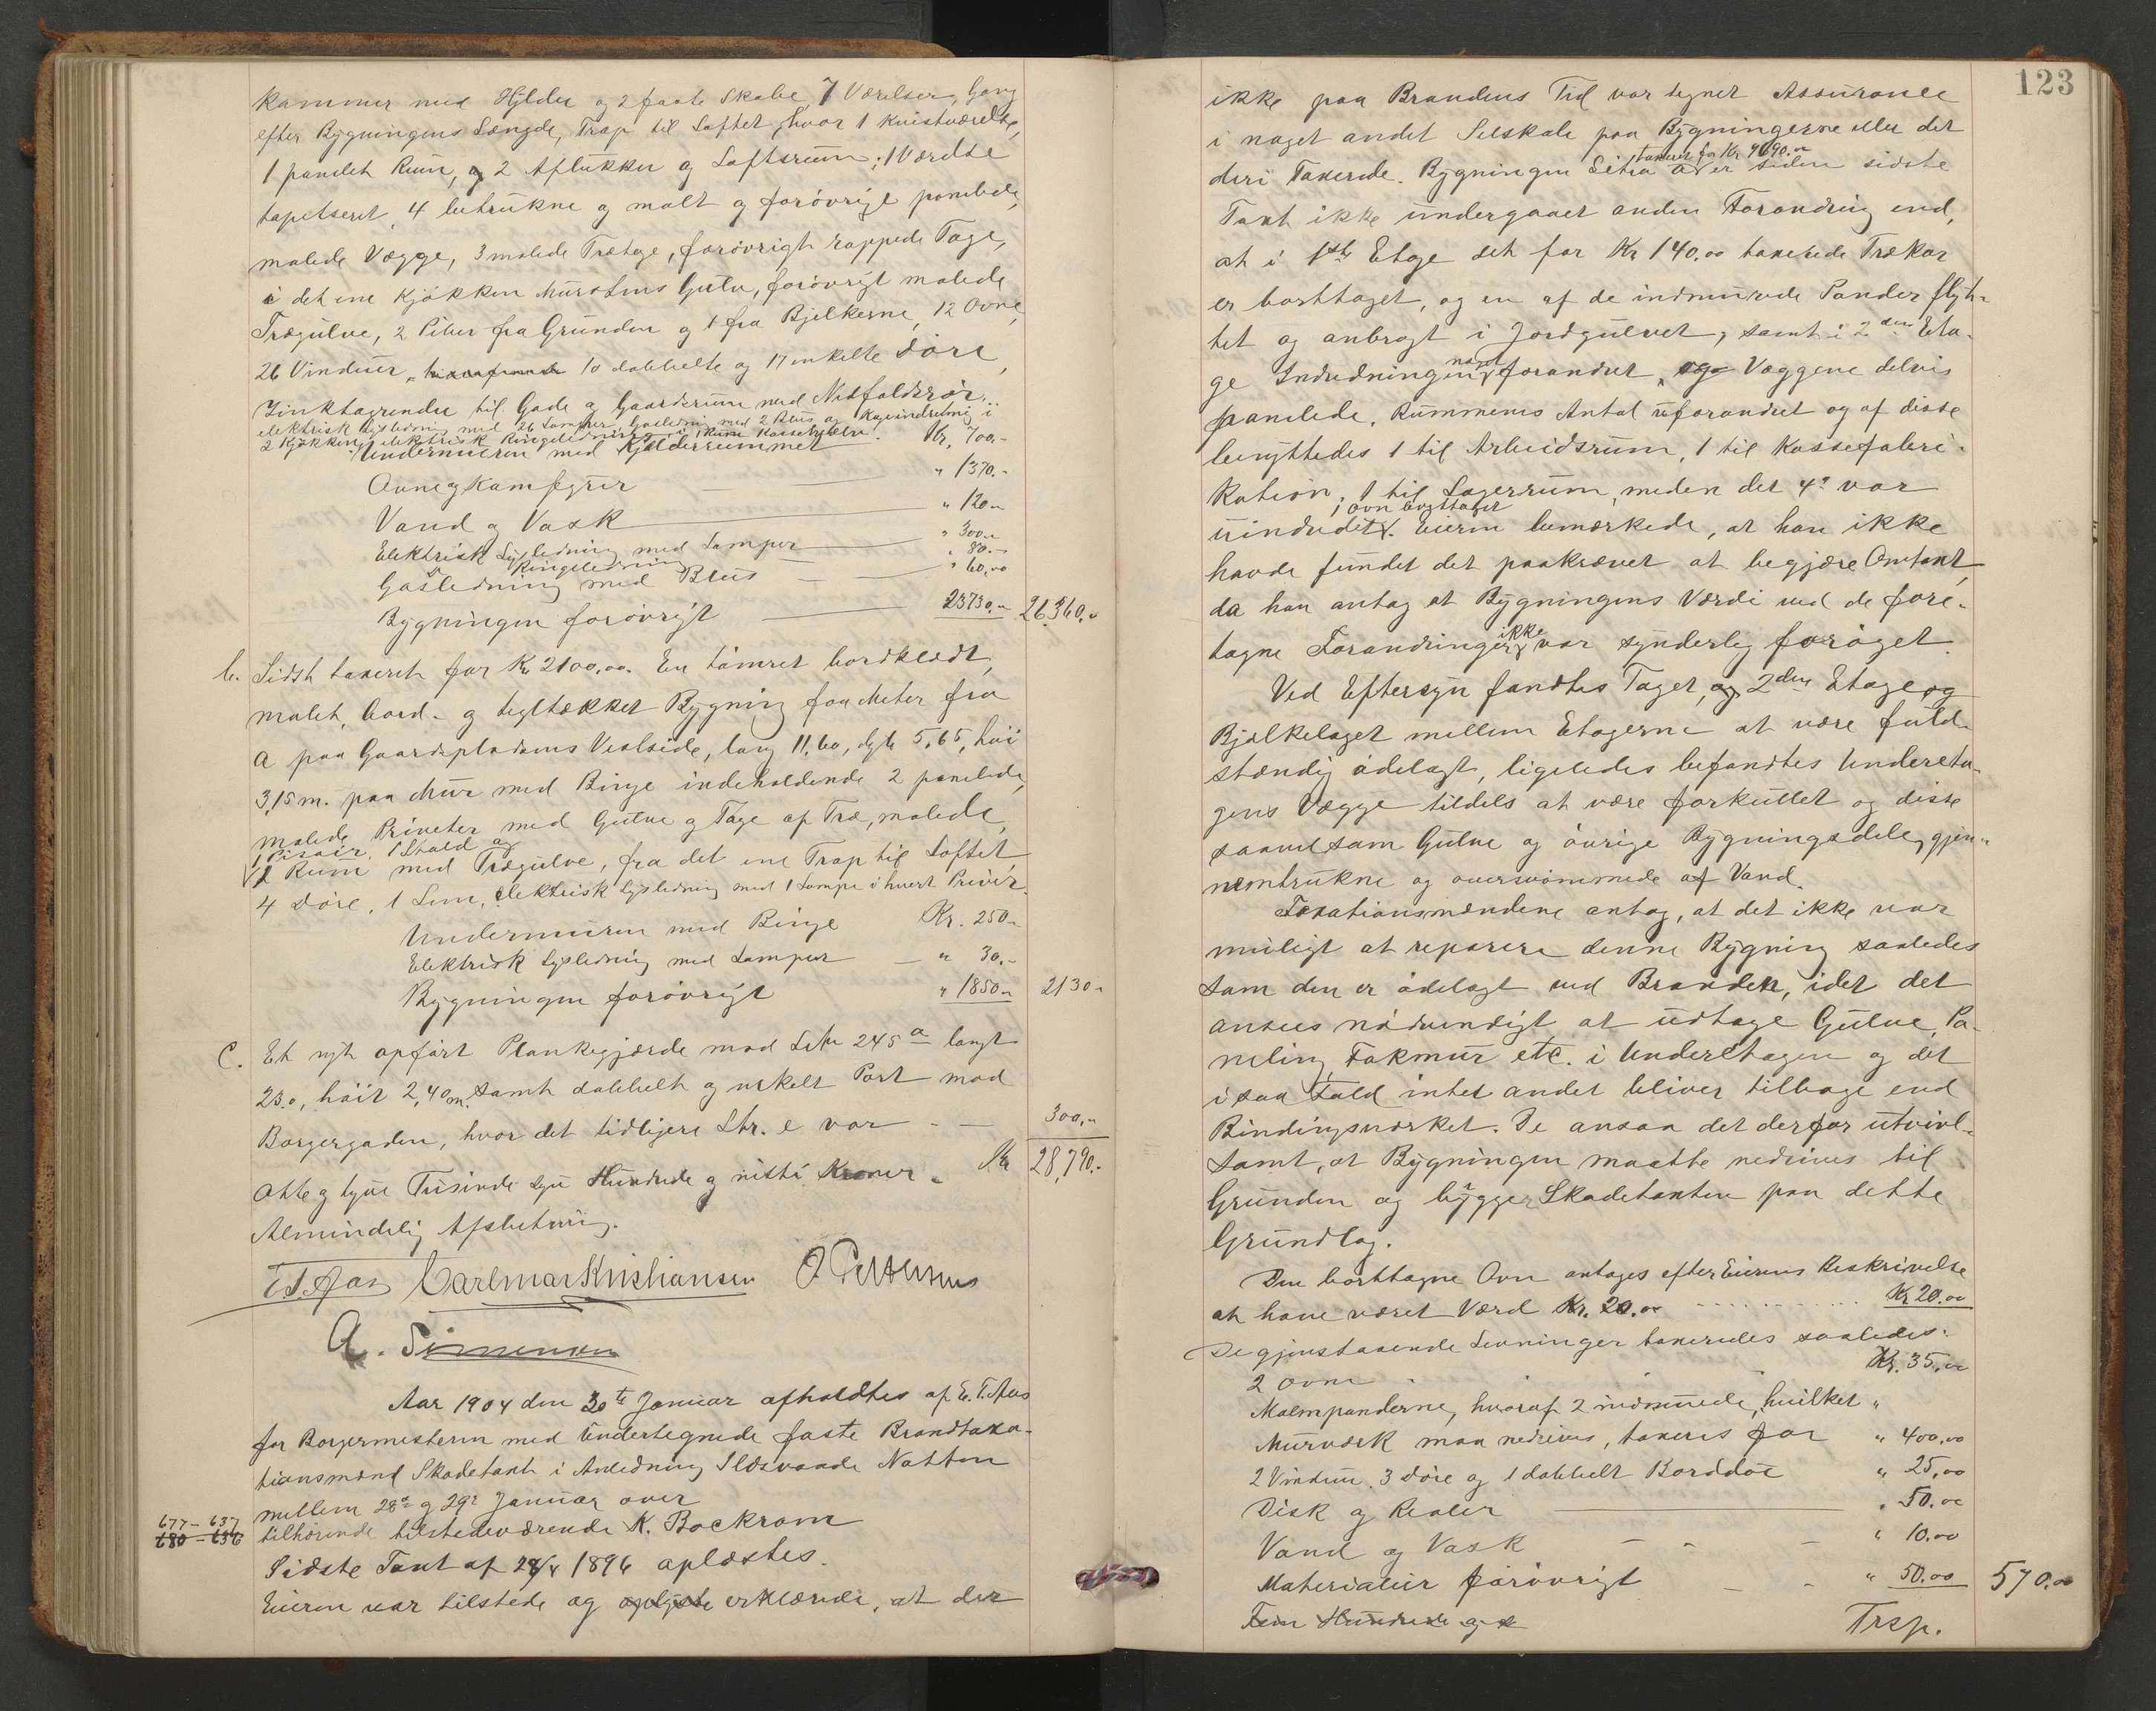 kammer med Hylder og 2 faste Skabe, 7 Værelser, Gang
efter Bygningens Længde, Trap til Loftet, hvor 1 Kvistværelse,
1 panelet Rum, og 2 Aflukker og Loftsrum; 1 Værelse
tapetseret, 4 betrukne og malt og forøvrigt panelede,
malede Vægge, 3 malede Trætage, forøvrigt rappede Tage,
i det ene Kjøkken Murstens Gulv, forøvrigt malede
Trægulve, 2 Piber fra Grunden og 1 fra Bjelkerne, 12 Ovne,
26 Vinduer, 10 dobbelte og 17 enkelte Døre,
Zinktagrender til Gade og Gaardsrum med Nedfaldsrør.
elektrisk Lysledning med 26 Lamper, Gasledning med 2 Blus og Kogeindretning i
2 Kjøkken, elektrisk Ringeledning, i 1 Rum
Undermuren med Kjelderrummet Kr. 700.-
Ovne og Kamfyrer " 1370.-
Vand og Vask " 120.-
Elektrisk Lysledning med Lamper " 300.-
Do Ringeledning " 80.-
Gasledning med Blus " 60,00
Bygningen forøvrigt 23730.- 26,360.-
b. Sidst taxeret for Kr. 2100,00. En tømret bordklædt,
malet, bord- og tegltækket Bygning faa Meter fra
a paa Gaardspladsens Vestside, lang 11,60, dyb 5,65, høi
3,15 m. paa Mur med Binge indeholdende 2 panelede,
malede Priveter med Gulve og Tage af Træ, malede,
1 Pissoir, 1 Stald og
2 Rum med Trægulve, fra det ene Trap til Loftet,
4 Døre, 1 Lem, elektrisk Lysledning med 1 Lampe i hvert Privet.
Undermuren med Binge Kr. 250.-
Elektrisk Lysledning med Lamper " 30.-
Bygningen forøvrigt " 1850.- 2130.-
c. Et nyt opført Plankegjærde mod Litr 245 a langt
23.0, høit 2,40 m. samt dobbelt og enkelt Port mod
Borgergaden, hvor det tidligere Litr. e var 300,-
Kr 28,790.-
Otte og tyve Tusinde syv Hundrede og nitti Kroner.
Almindelig Afslutning.
E. T. Aas Carelmar Kristiansen O Pettersens
A. Simensen
Aar 1904 den 30te Januar afholdtes af E. T. Aas
for Borgermesteren med undertegnede faste Brandtaxa-
tionsmænd Skadetaxt i Anledning Ildsvaade Natten
mellem 28de og 29de Januar over
677-637
680-636
tilhørende tilstedeværende K. Backram
Sidste Taxt af 28/4 1896 oplæstes.
Eieren var tilstede og oplyste erklærede, at der
123
ikke paa Brandens Tid var tegnet Assurance
i noget andet Selskab paa Bygningerne eller det
taxeret for Kr 4690.00
deri Taxerede. Bygningen Litra a er siden sidste
Taxt ikke undergaaet anden Forandring end,
at i 1ste Etage det for Kr 140.00 taxerede Trækar
er borttaget, og en af de indmurede Pander flyt-
tet og anbragt i Jordgulvet, samt i 2den Eta-
ge Indredningen noget forandret, og Væggene delvis
panelede. Rummenes Antal uforandret og af disse
benyttedes 1 til Arbeidsrum, 1 til Kassefabri-
kation, 1 til Lagerrum, meden det 4de var
1 Ovn borttaget
uindredet. Eieren bemærkede, at han ikke
havde fundet det paakrævet at begjære Omtaxt,
da han antog at Bygningens Værdi ved de fore-
tagne Forandringer ikke var synderlig forøget.
Ved Eftersyn fandtes Taget, og 2den Etage og
Bjelkelaget mellem Etagerne at være fuld-
stændig ødelagt, ligeledes befandtes Undereta-
gens Vægge tildels at være forkullet og disse
saavelsom Gulve og øvrige Bygningsdele, gjen-
nemtrukne og oversvømmede af Vand.
Taxationsmændene antog, at det ikke var
muligt at reparere denne Bygning saaledes
som den er ødelagt ved Branden, idet det
ansees nødvendigt at udtage Gulve, Pa-
neling, Fakmur etc. i Underetagen og det
i saa Fald intet andet bliver tilbage end
Bindingsværket. De ansaa det derfor utvivl-
somt, at Bygningen maatte nedrives til
Grunden og bygger Skadetaxten paa dette
Grundlag.
Den borttagne Ovn antages efter Eierens Beskrivelse
at have været Værd Kr. 20.00 Kr 20.00
De gjenstaaende Levninger taxeredes saaledes:
2 Ovne Kr. 35,00
Malmpanderne, hvoraf 2 indmurede, hvilket "
Murværk maa nedrives, taxeres for " 400,00
2 Vinduer, 3 Døre og 1 dobbelt Borddør " 25,00
Disk og Reoler " 50.00
Vand og Vask " 10.00
Materialier forøvrigt " 50.00 570.00
Fem Hundrede og s
Trsp.